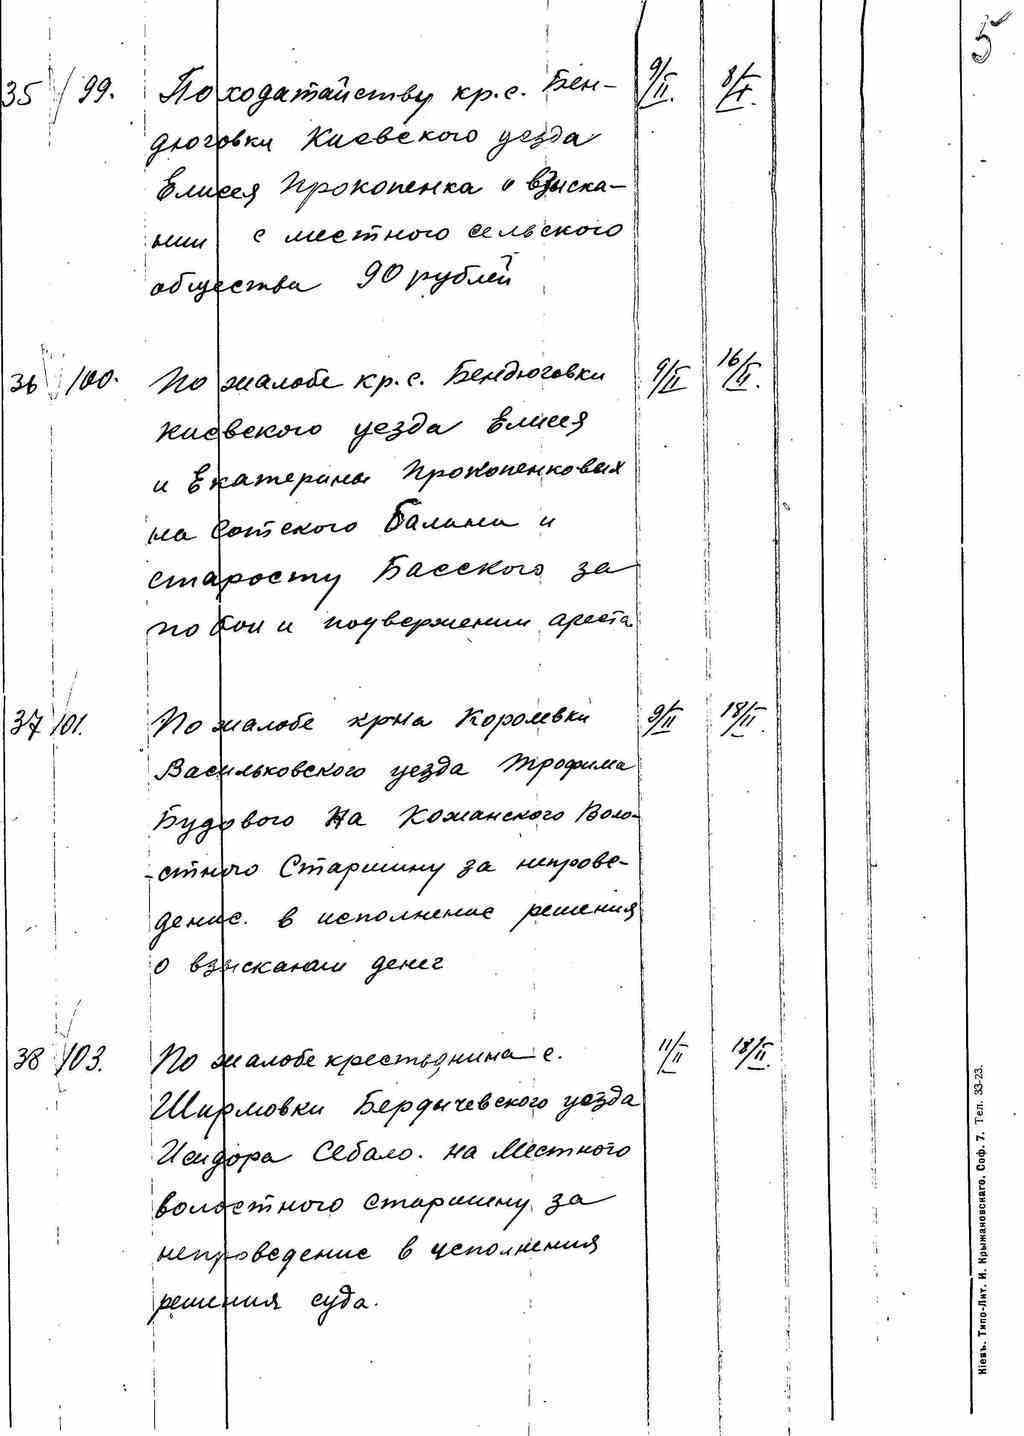 5
35 / 99. По ходатайству кр. с. Бен- 9/II. 8/X.
дюговки Киевского уезда
Елисея Прокопенка о взыска-
нии с местного сельского
общества 90 рублей
36 100. По жалобе кр. с. Бендюговки 9/II 16/II.
Киевского уезда Елисея
и Екатерины Прокопенковых
на Сотского Балана и
старосту Басского за
побои и подвержении ареста
37 101. По жалобе кр-на Королевки 9/II 18/II.
Васильковского уезда Трофима
Будового на Кожанского Воло-
-стного Старшину за непрове-
дение. в исполнение решения
о взыскании денег
38 103. По жалобе крестьянина с. 11/II 18/II.
Ширмовки Бердычевского уезда
Исидора Себало. на Местного
волостного старшину за
непроведение в исполнения
решения суда.
Кіевъ. Типо-Лит. И. Крыжановскаго. Соф. 7. Тел. 33-23.